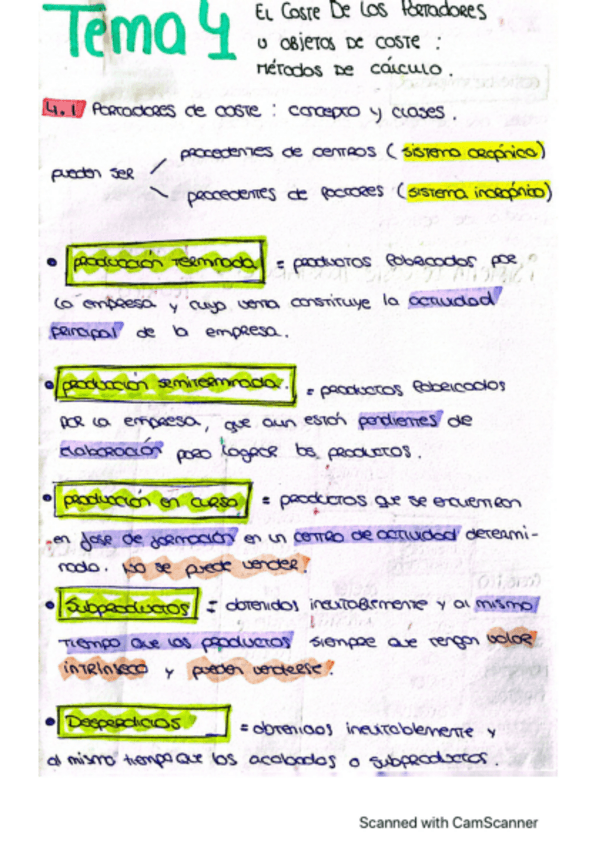 Tema 4
El Coste De Los Portadores
u objetos de coste :
métodos de cálculo.
4.1 Portadores de coste : concepto y clases.
pueden ser
procedentes de centros (sistema orgánico)
procedentes de factores (sistema inorgánico)
• producción terminada = productos fabricados por
la empresa y cuya venta constituye la actividad
principal de la empresa.
• producción semiterminada. = productos fabricados
por la empresa, que aun están pendientes de
elaboración para lograr los productos.
• producción en curso = productos que se encuentran
en fase de formación en un centro de actividad determi-
nado. No se puede vender!
• Subproductos = obtenidos inevitablemente y al mismo
tiempo que los productos siempre que tengan valor
intrínseco y pueden venderse!
• Desperdicios = obtenidos inevitablemente y
al mismo tiempo que los acabados o subproductos.
Scanned with CamScanner